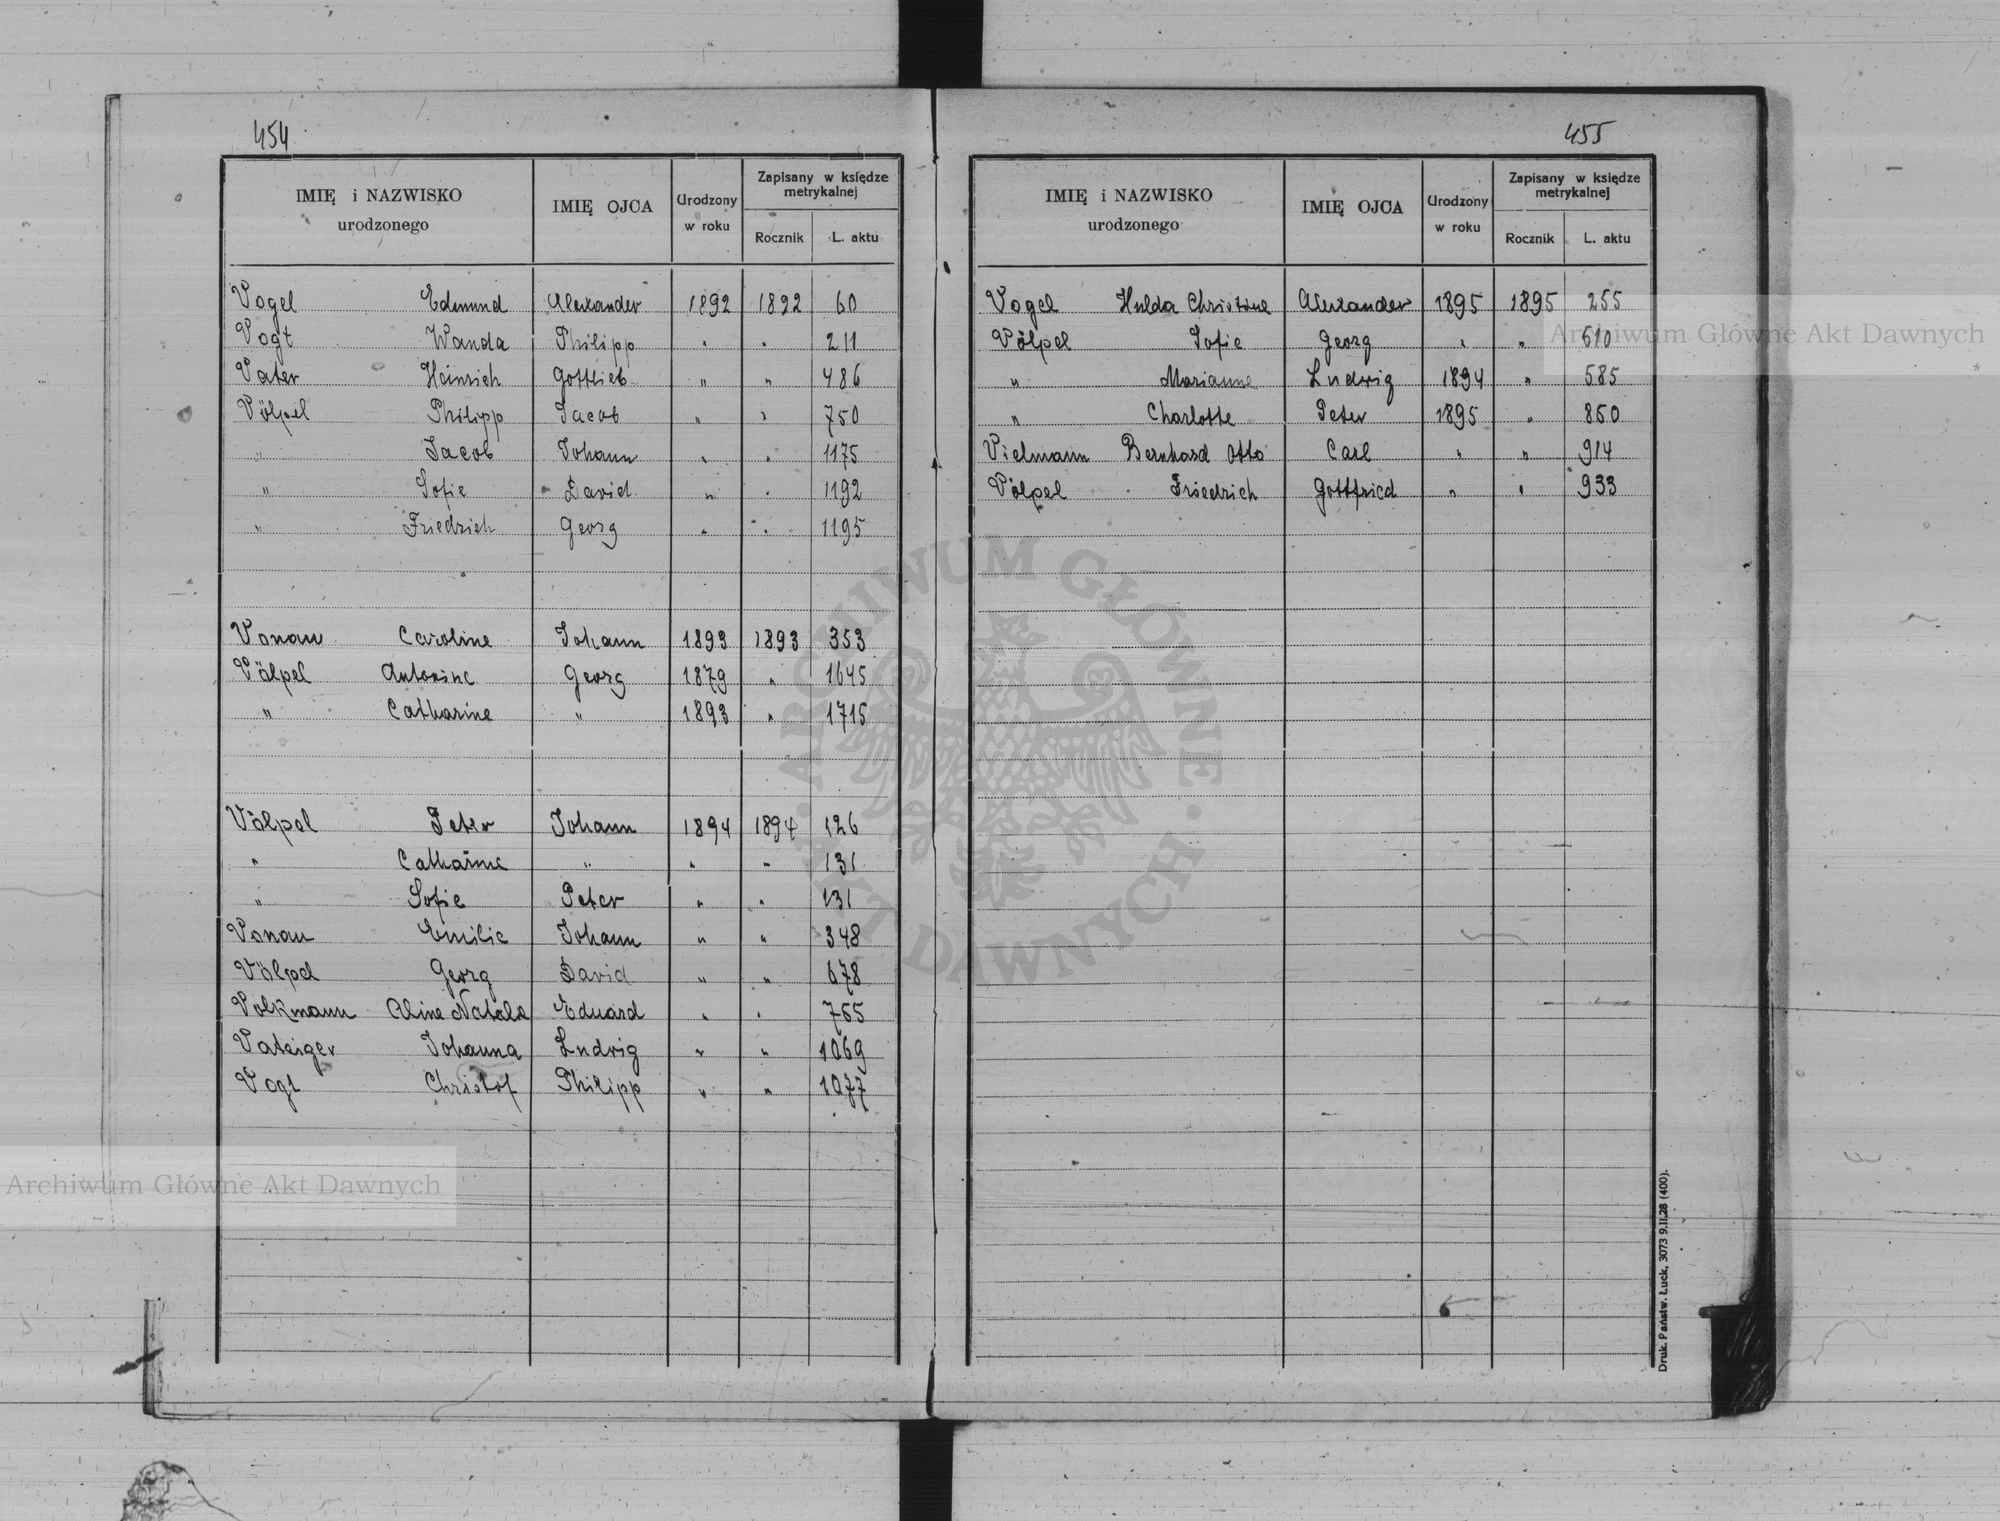 454
IMIĘ i NAZWISKO urodzonego IMIĘ OJCA Urodzony w roku Zapisany w księdze metrykalnej Rocznik L. aktu
Vogel Edmund Alexander 1892 1892 60
Vogt Wanda Philipp " " 211
Vater Heinrich Gottlieb " " 486
Völpel Philipp Jacob " " 750
" Jacob Johann " " 1175
" Sofie David " " 1192
" Friedrich Georg " " 1195
Vonau Caroline Johann 1893 1893 353
Völpel Antonine Georg 1879 " 1645
" Catharine " 1893 " 1715
Völpel Peter Johann 1894 1894 126
" Catharine " " " 131
" Sofie Peter " " 131
Vonau Emilie Johann " " 348
Völpel Georg David " " 678
Volkmann Aline Natalie Eduard " " 765
Johanna Ludwig " " 1069
Vogt Christof Philipp " " 1077
455
IMIĘ i NAZWISKO urodzonego IMIĘ OJCA Urodzony w roku Zapisany w księdze metrykalnej Rocznik L. aktu
Vogel Hulda Christine Alexander 1895 1895 255
Völpel Sofie Georg " " 610
" Marianne Ludwig 1894 " 585
" Charlotte Peter 1895 " 850
Vielmann Bernhard Otto Carl " " 914
Völpel Friedrich Gottfried " " 933
Druk. Państw. Łuck, 3073 9.II.28 (400).
Archiwum Główne Akt Dawnych
Archiwum Główne Akt Dawnych
ARCHIWUM GŁÓWNE · AKT DAWNYCH ·